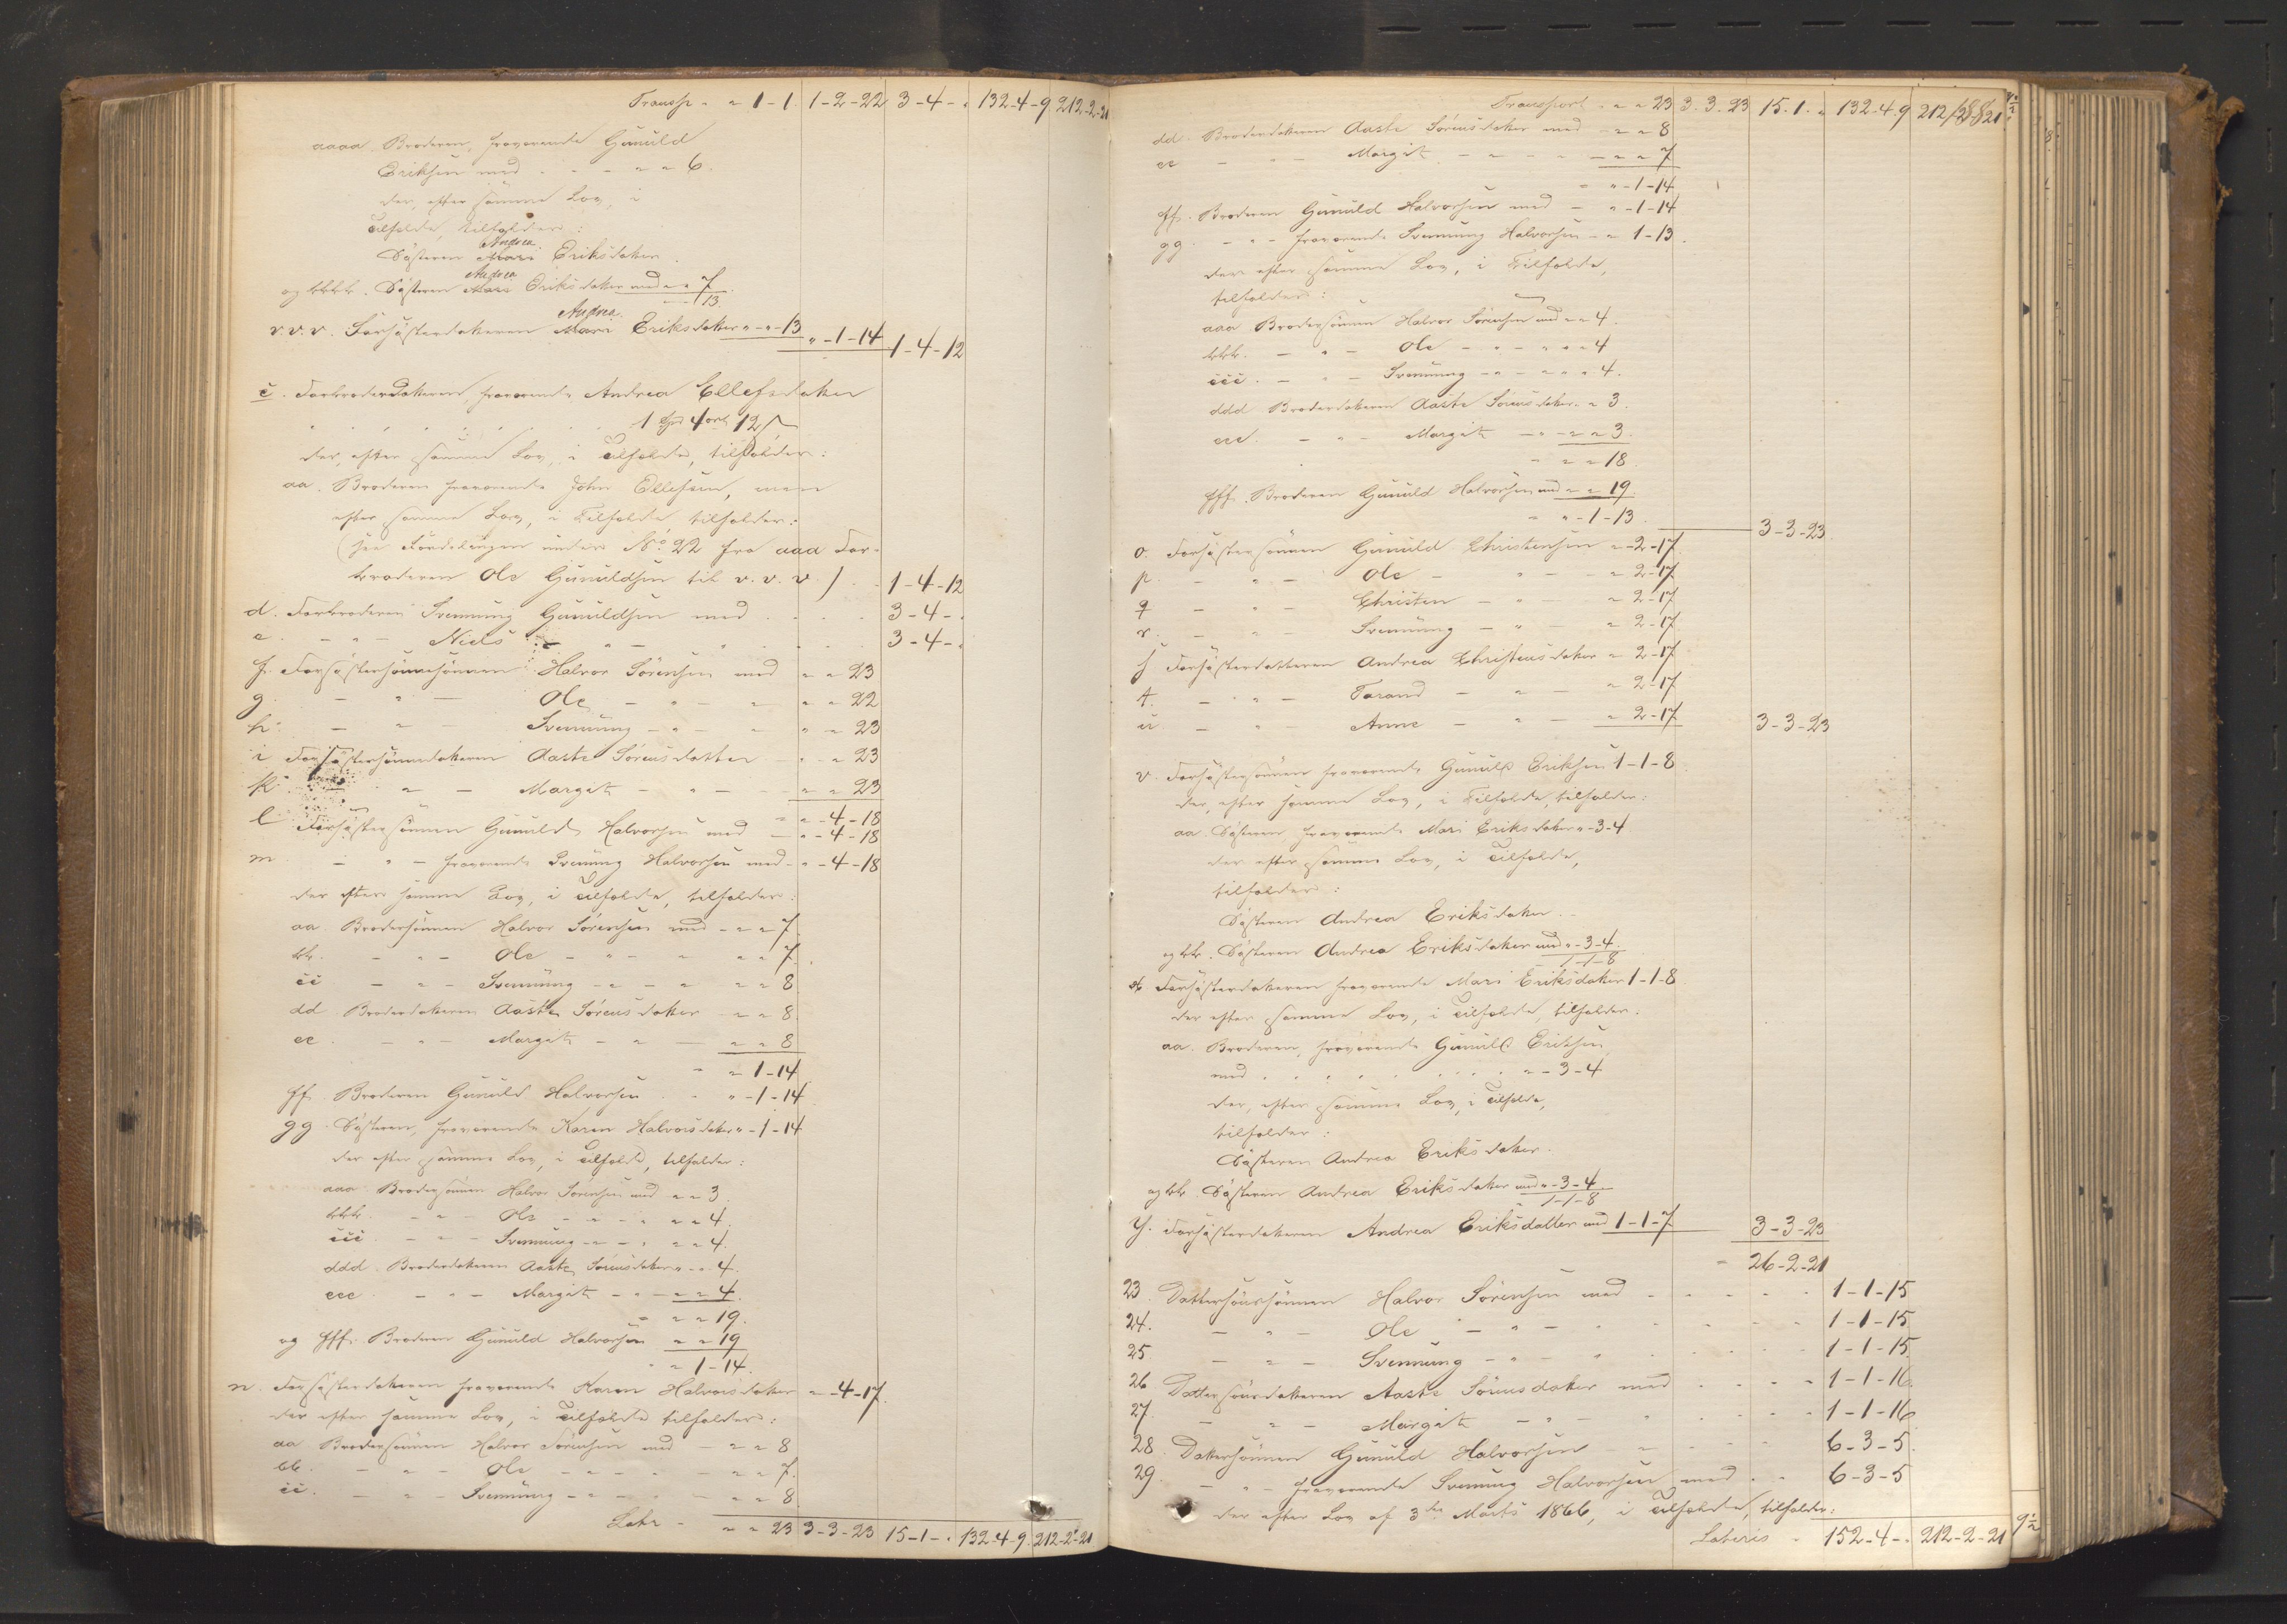 Transp. " " 1-1 1-2-22 3-4-" 132-4-9 212-2-21
aaaa Broderen, fraværende Gunuld
Eriksen med - - - " " 6.
der, efter samme Lov, i
Tilfælde, tilfalder:
Andrea
Søsteren Mari Eriksdatter.
Andrea
og bbbb. Søsteren Mari Eriksdatter med " " 7
" " 13
Andrea
v.v.v. Farsøsterdatteren Mari Eriksdatter " - " - 13 " - 1-14 1-4-12
c. Farbroderdatteren, fraværende Andrea Ellefsdatter
1 Spd 4 ort 12 ß
der, efter samme Lov, i Tilfælde, tilfalder:
aa. Broderen fraværende John Ellefsen, men
efter samme Lov, i Tilfælde, tilfalder:
(see Fordelingen under No. 22 fra aaa Far-
broderen Ole Gunuldsen til v.v.v.) . . 1-4-12
d. Farbroderen Svennung Gunuldsen med . . . . 3-4-"
e. - " - Niels - " - " . . . . 3-4-"
f. Farsøstersønnesønnen Halvor Sørensen med " " 23
g. - " - Ole - " - " " " 22
h. - " - Svennung - " - " " " 23
i Farsøstersønnedatteren Aaste Sørensdatter " " 23
k. - " - Margit - " - " " 23
" " - 4-18
l Farsøstersønnen Gunuld Halvorsen med - " - 4-18
m - " - fraværende Svennung Halvorsen med - " - 4-18
der efter samme Lov, i Tilfælde, tilfalder:
aa. Brodersønnen Halvor Sørensen med - " " 7
bb. - " - Ole - " - " " " 7.
cc - " - Svennung - " - " " " 8
dd Broderdatteren Aaste Sørensdatter " " 8
ee. - " - Margit - " - " " 8
" " 1-14
ff. Broderen Gunuld Halvorsen . " " -1-14
gg. Søsteren, fraværende Karen Halvorsdatter " -1-14
der efter samme Lov, i Tilfælde, tilfalder:
aaa Brodersønnen Halvor Sørensen med " " 3
bbb. - " - Ole - " - " " " 4.
ccc - " - Svennung - " - " " " 4.
ddd. Broderdatteren Aaste Sørensdatter " - " 4.
eee - " - Margit - " - " " 4.
" " " 19.
og fff. Broderen Gunuld Halvorsen " " 19
" " 1-14.
n. Farsøsterdatteren fraværende Karen Halvorsdatter " - 4-17.
der efter samme Lov, i Tilfælde tilfalder:
aa Brodersønnen Halvor Sørensen med - " " 8
bb. - " - Ole - " - " - " " 7.
cc. - " - Svennung - " - " - " " 8
Latr - " " 23 3-3-23 15-1-" 132-4-9 212-2-21
Transport " " " 23 3.3.23 15.1." 132-4.9 212/2-21
dd. Broderdatteren Aaste Sørensdatter med - " " 8
ee - " - Margit - " - " - " " 7
" " -1-14
ff. Broderen Gunuld Halvorsen med - " -1-14
gg. - " - fraværende Svennung Halvorsen - " 1-13.
der efter samme Lov, i Tilfælde,
tilfalder:
aaa Brodersønnen Halvor Sørensen med " " 4.
bbb. - " - Ole - " - " " " 4
ccc. - " - Svennung - " - " " " 4.
ddd Broderdatteren Aaste Sørensdatter " " 3.
eee. - " - Margit - " - " " 3.
" " " 18.
fff. Broderen Gunuld Halvorsen med " " 19.
" " -1-13. 3-3-23.
o. Farsøstersønnen Gunuld Christensen " -2-17.
p. - " - Ole - " - " 2-17
q - " - Christen - " - " 2-17
r. - " - Svennung - " - " 2-17
s Farsøsterdatteren Andrea Christensdatter " 2-17
t. - " - Tarand - " - " 2-17
u. - " - Anne - " - " 2-17 3-3-23
v. Farsøstersønnen fraværende Gunuld Eriksen 1-1-8
der, efter samme Lov, i Tilfælde, tilfalder:
aa. Søsteren, fraværende Mari Eriksdatter " -3-4
der efter samme Lov, i Tilfælde,
tilfalder:
Søsteren Andrea Eriksdatter.
og bb. Søsteren Andrea Eriksdatter med " -3-4.
1-1-8
x Farsøsterdatteren fraværende Mari Eriksdatter 1-1-8
der efter samme Lov, i Tilfælde, tilfalder:
aa. Broderen, fraværende Gunuld Eriksen
med . . . . . . . . " -3-4
der, efter samme Lov, i Tilfælde,
tilfalder:
Søsteren Andrea Eriksdatter.
og bb. Søsteren Andrea Eriksdatter med " -3-4
1-1-8
y. Farsøsterdatteren Andrea Eriksdatter med 1-1-7 3-3-23
26-2-21
23. Dattersønssønnen Halvor Sørensen med - - - - 1-1-15
24. - " - Ole - " - " - - - 1-1-15.
25 - " - Svennung - " - " . . . 1-1-15.
26 Dattersønsdatteren Aaste Sørensdatter med . . . 1-1-16.
27. - " - Margit - " - " . . . 1-1-16
28. Dattersønnen Gunuld Halvorsen " - - - 6-3-5.
29. - " - fraværende Svennung Halvorsen med . . 6-3-5
der efter Lov af 3die Marts 1866, i Tilfælde, tilfalder:
Lateris - 152-4-" 212-2-21
9½